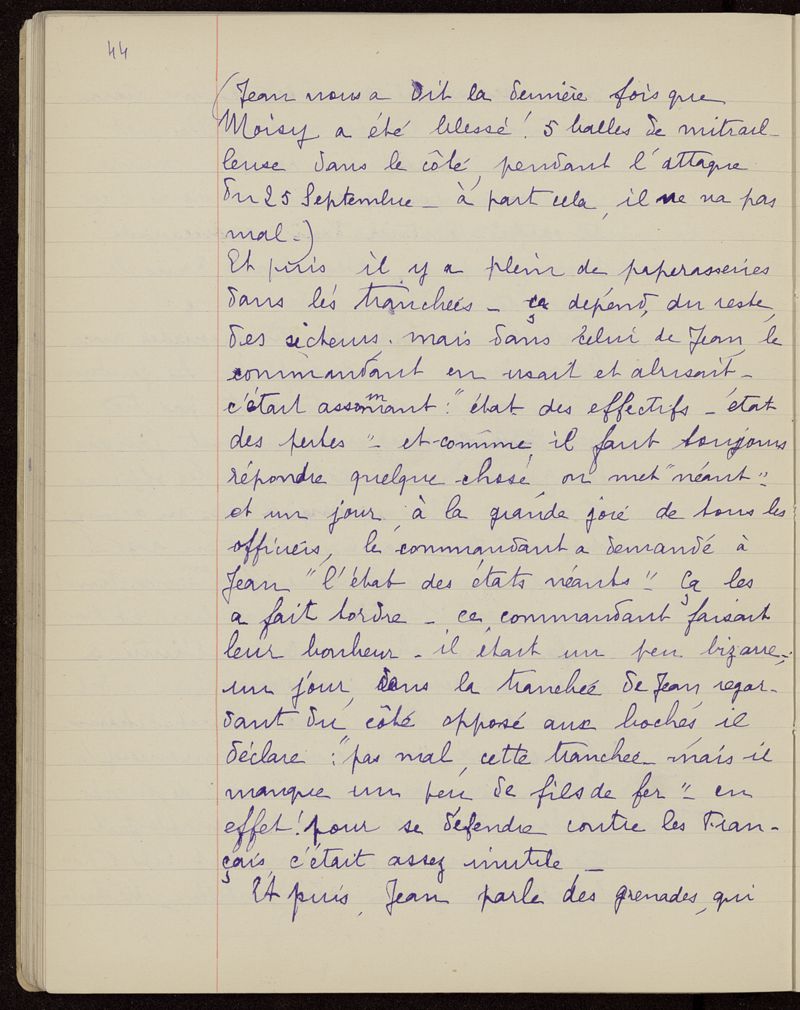 44
(Jean nous a dit la dernière fois que
Moisy a été blessé ! 5 balles de mitrail-
leuse dans le côté, pendant l'attaque
du 25 Septembre - à part cela, il ne va pas
mal -)
Et puis il y a plein de paperasseries
dans les tranchées - ça dépend, du reste,
des secteurs. mais dans celui de Jean, le
commandant en usait et abusait -
c'était assommant : "état des effectifs - état
des pertes" - et comme, il faut toujours
répondre quelque chose, on met "néant" -
et un jour, à la grande joie de tous les
officiers, le commandant a demandé à
Jean "l'état des états néants" - Ça les
a fait tordre - ce commandant faisait
leur bonheur - il était un peu bizarre ;
un jour, dans la tranchée de Jean, regar-
dant du côté opposé aux boches, il
déclare : "pas mal, cette tranchée - mais il
manque un peu de fils de fer" - en
effet ! pour se défendre contre les Fran-
çais, c'était assez inutile -
Et puis, Jean parle des grenades, qui